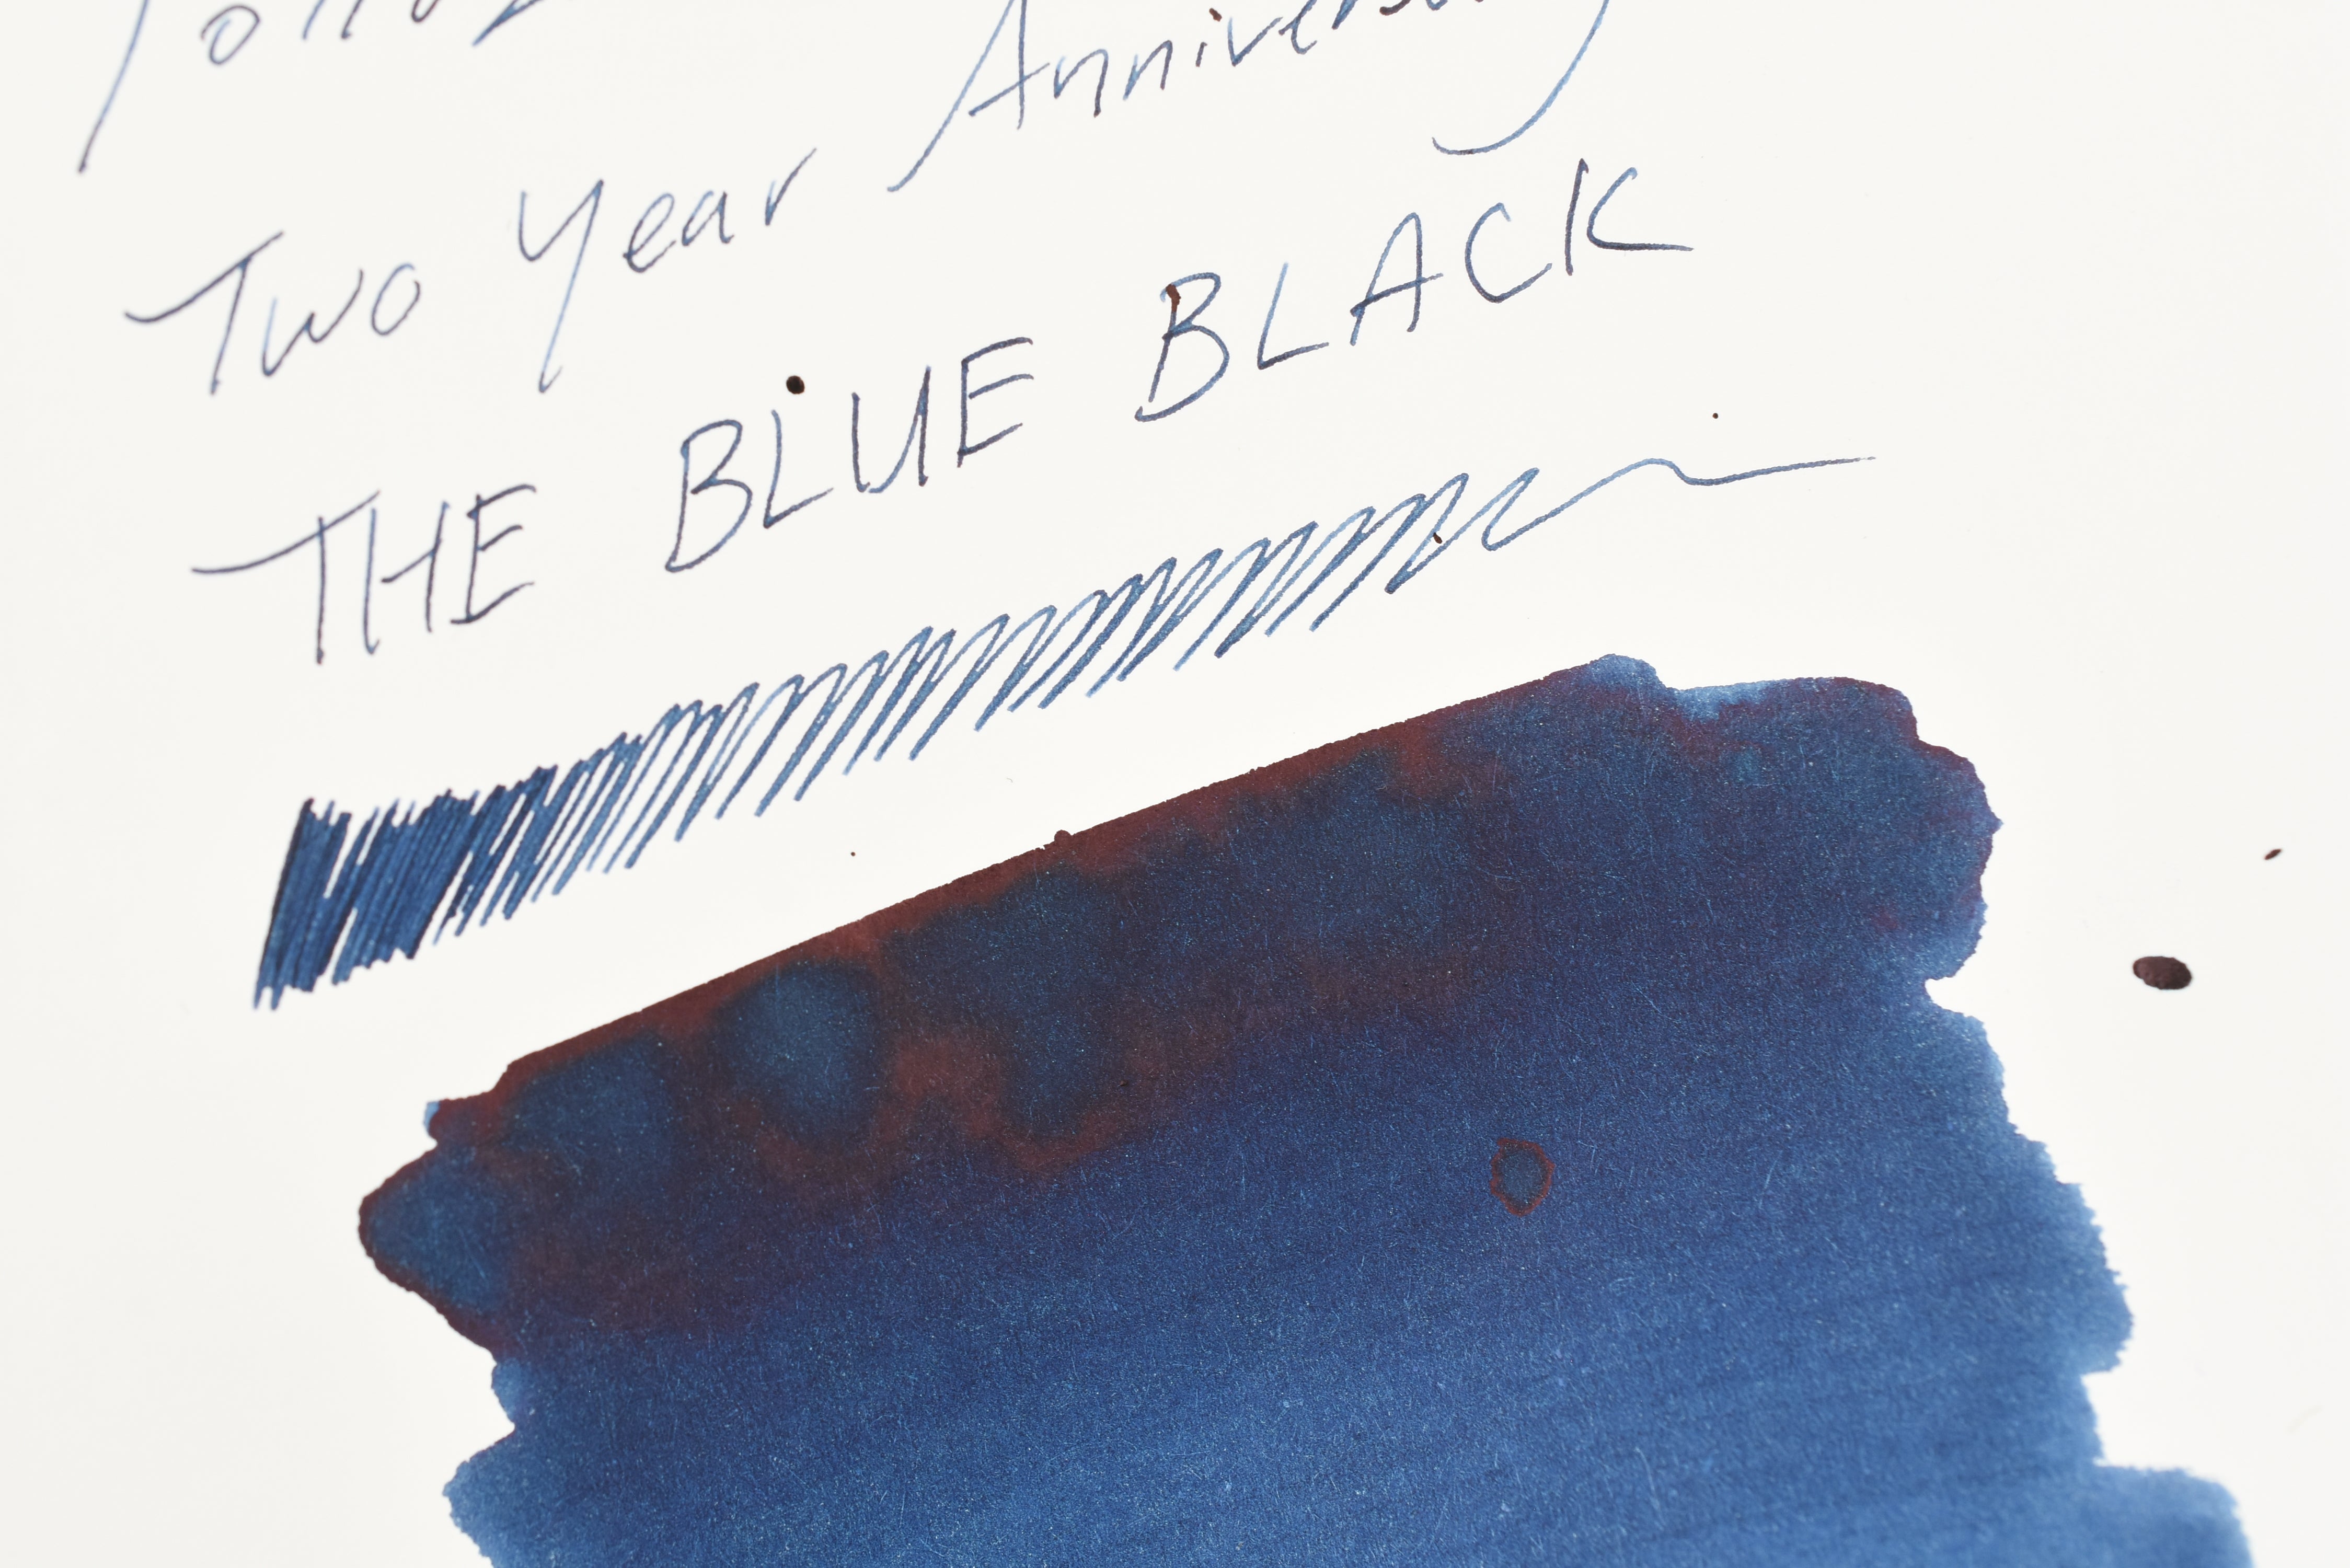 Two Year Anniversary
THE BLUE BLACK